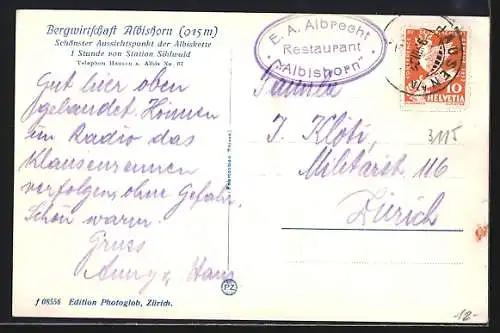 Bergwirtschaft Albishorn (915 m)
Schönster Aussichtspunkt der Albiskette
1 Stunde von Station Sihlwald
Telephon Hausen a. Albis No. 67
Gut hier oben
gelandet. Können
im Radio das
Klausenrennen
verfolgen, ohne Gefahr.
Schön warm.
Gruss
Anny & Hans
f 08556 Edition Photoglob, Zürich.
PZ
E. A. Albrecht
Restaurant
"Albishorn"
HAUSEN
10
HELVETIA
Familie
J. Klöti,
Militärst. 116
Zürich
3115
12.-